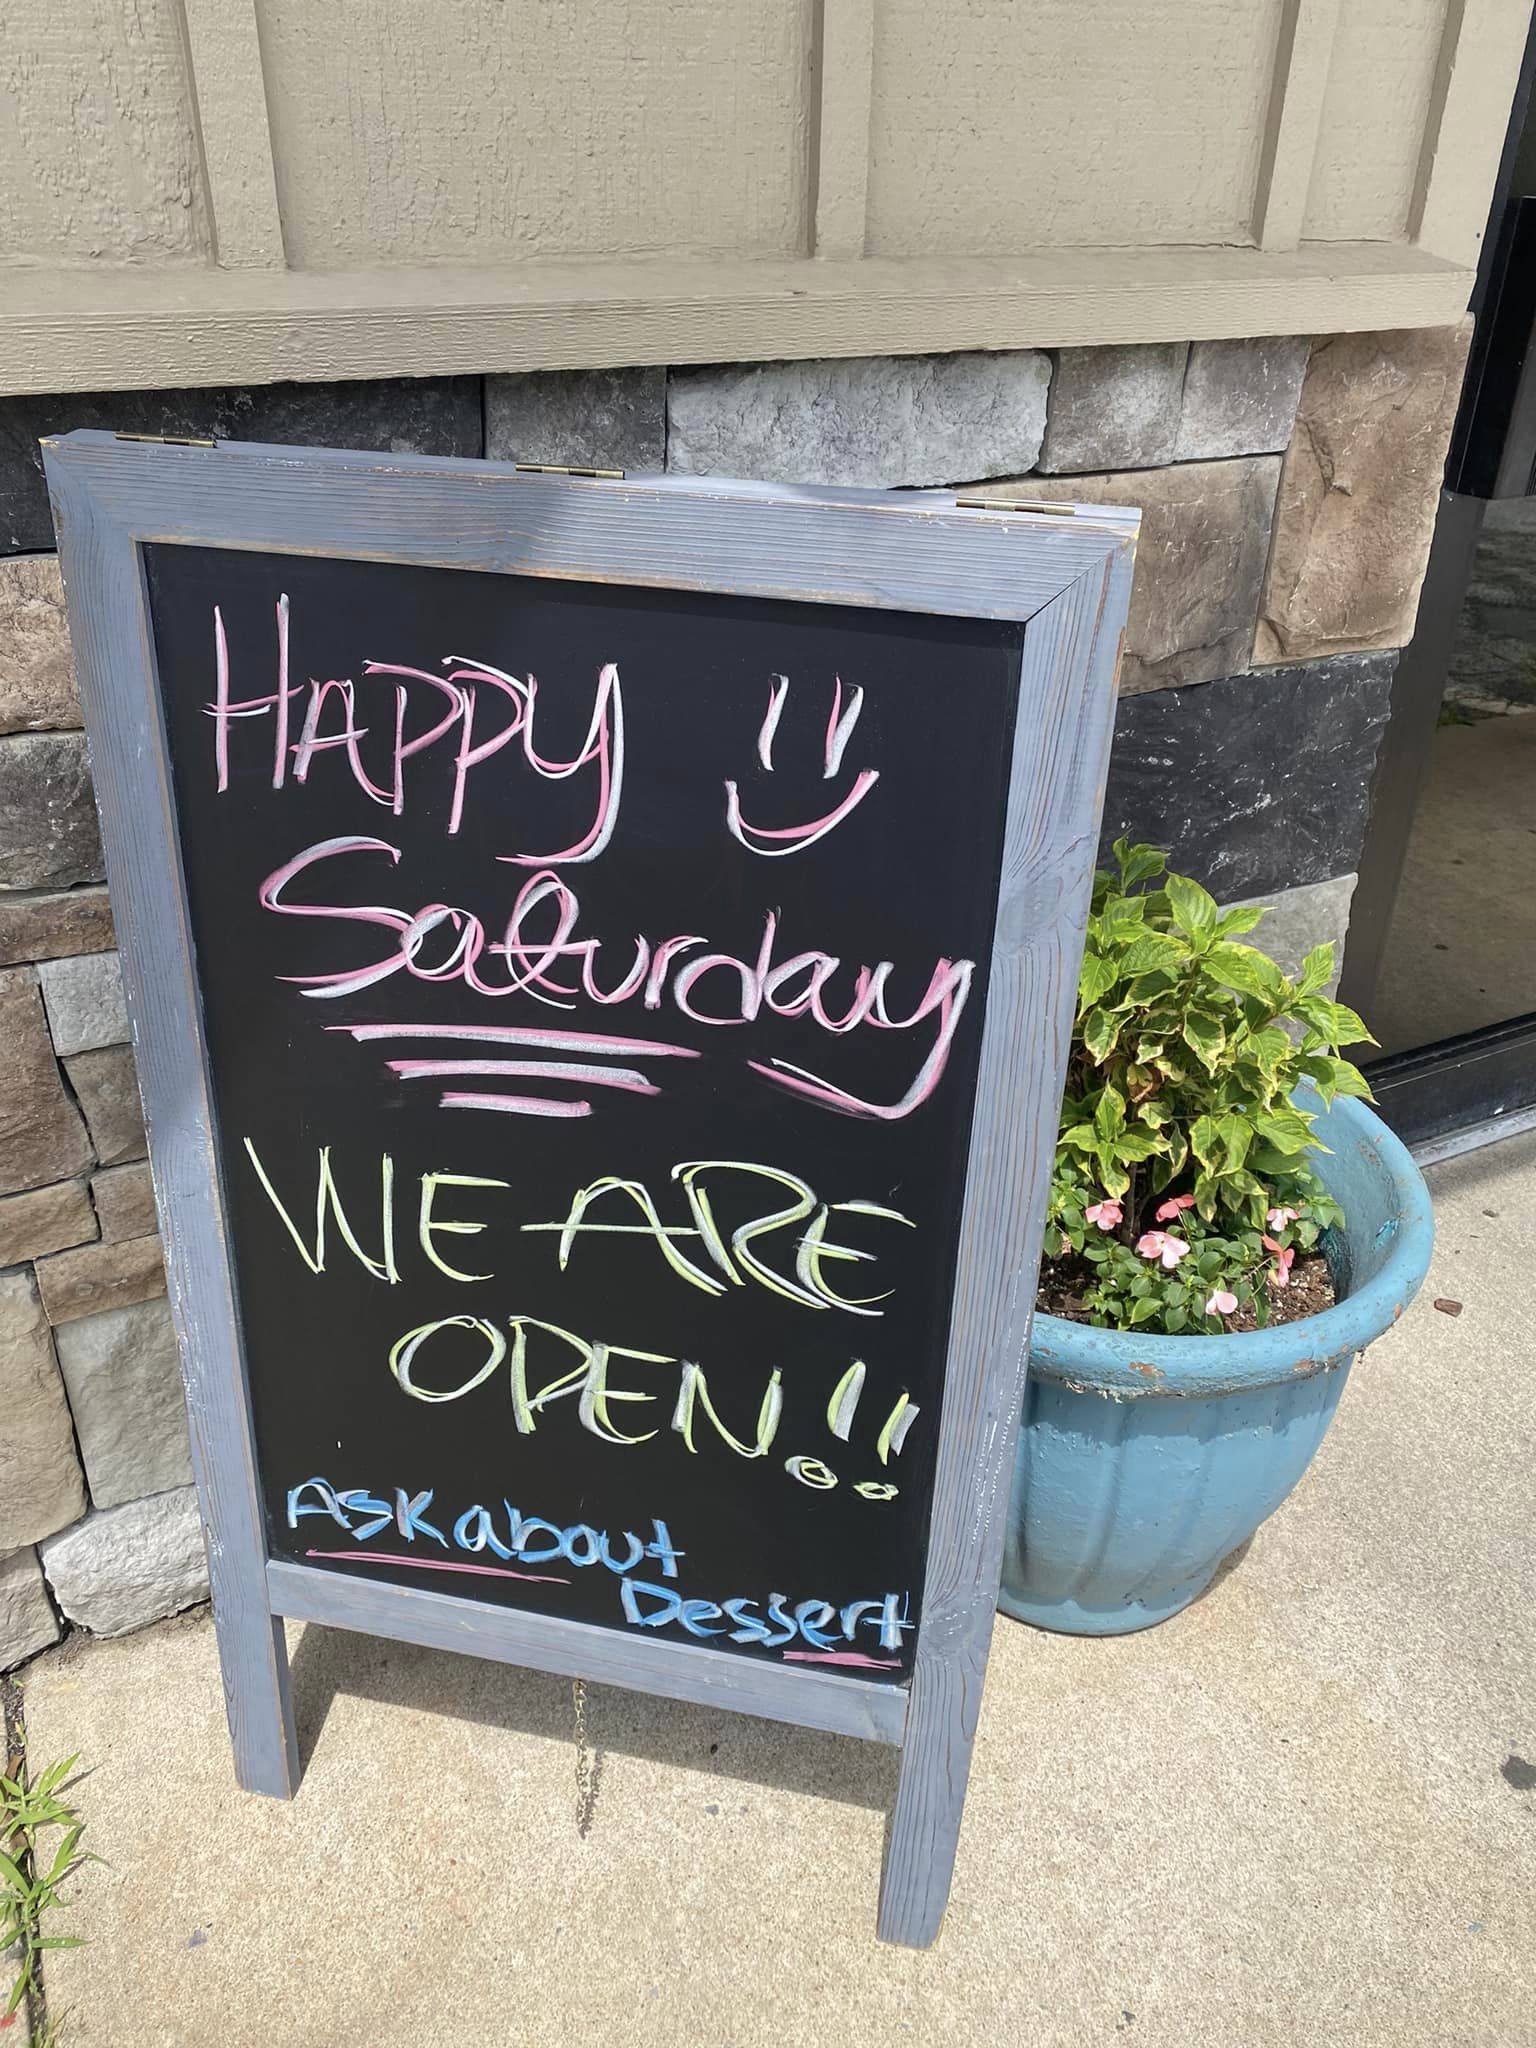 HAPPY
Saturday
WE ARE
OPEN!!
Ask about
Dessert